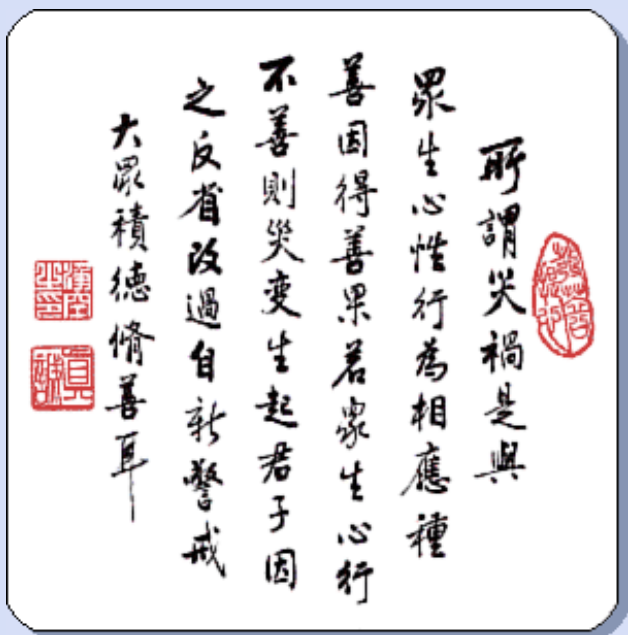 所謂災禍是與
眾生心性行為相應種
善因得善果若眾生心行
不善則災变生起君子因
之反省改過自新警戒
大眾積德脩善耳